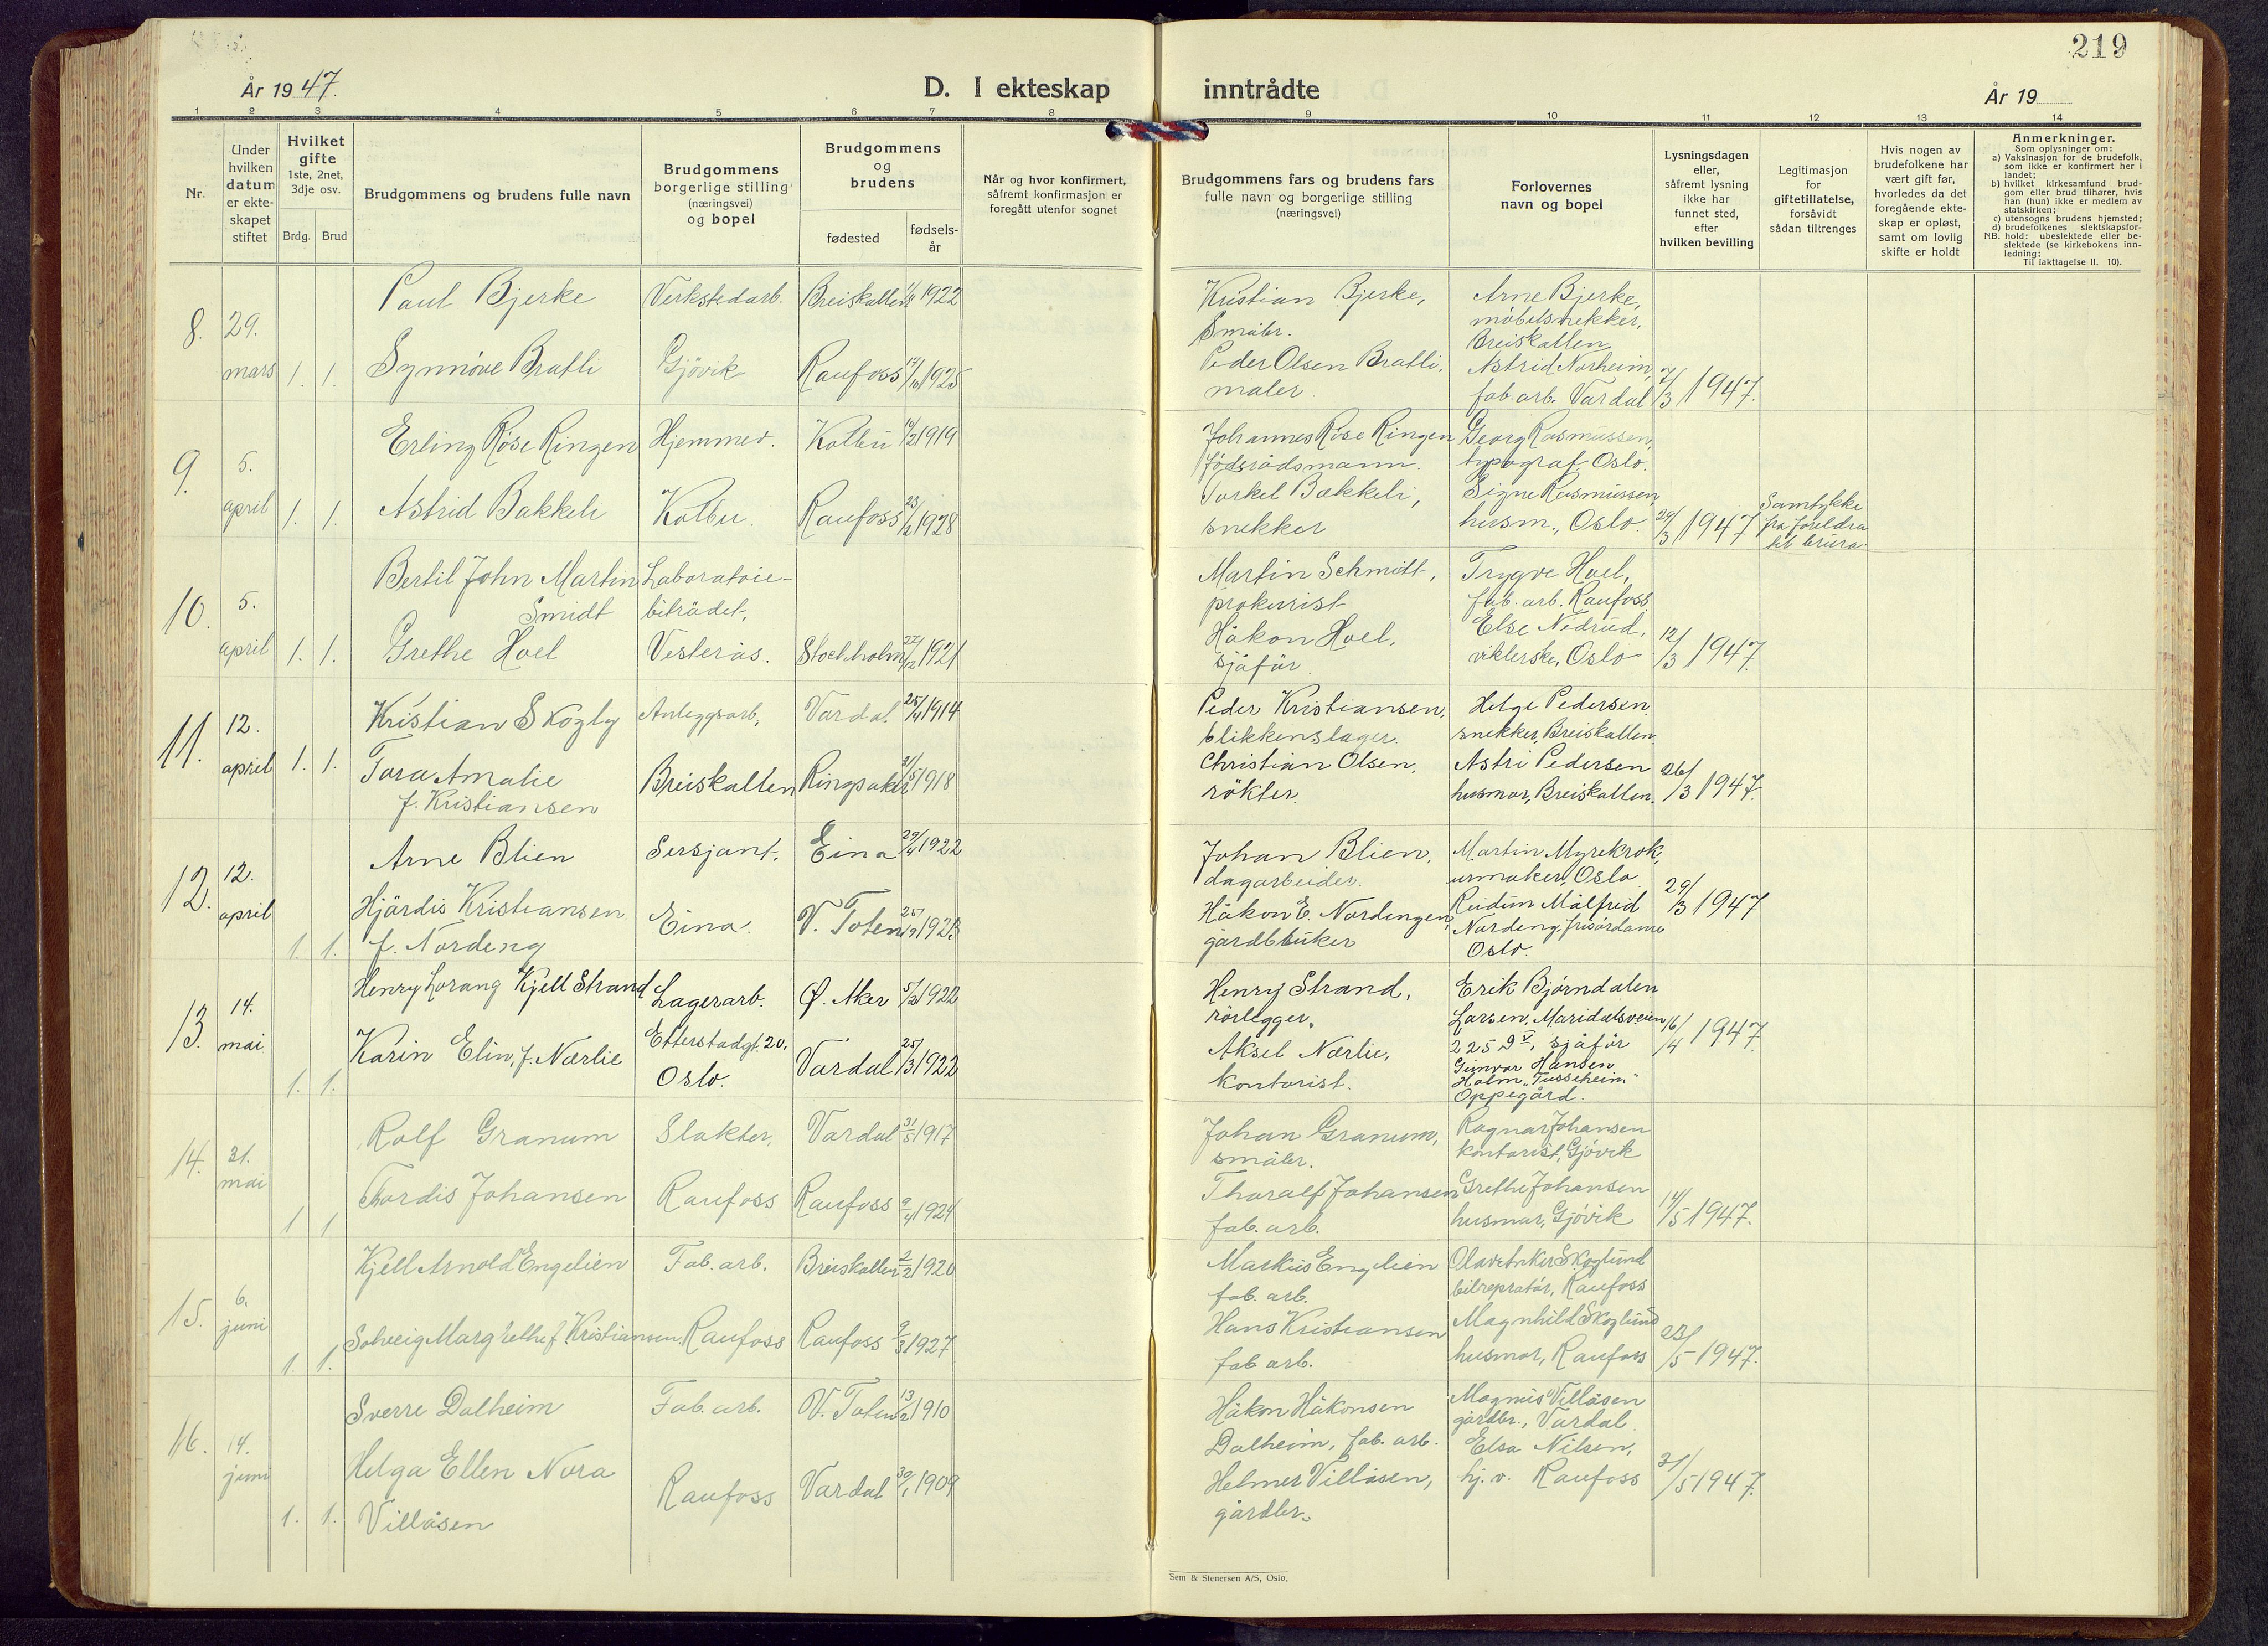 219
År 1947.
D. I ekteskap inntrådte
År 19
1 2 3 4 5 6 7 8 9 10 11 12 13 14
Nr.
Under
hvilken
datum
er ekte-
skapet
stiftet
Hvilket
gifte
1ste, 2net,
3dje osv.
Brdg. Brud
Brudgommens og brudens fulle navn
Brudgommens
borgerlige stilling
(næringsvei)
og bopel
Brudgommens
og
brudens
fødested
fødsels-
år
Når og hvor konfirmert,
såfremt konfirmasjon er
foregått utenfor sognet
Brudgommens fars og brudens fars
fulle navn og borgerlige stilling
(næringsvei)
Forlovernes
navn og bopel
Lysningsdagen
eller,
såfremt lysning
ikke har
funnet sted,
efter
hvilken bevilling
Legitimasjon
for
giftetillatelse,
forsåvidt
sådan tiltrenges
Hvis nogen av
brudefolkene har
vært gift før,
hvorledes da det
foregående ekte-
skap er opløst,
samt om lovlig
skifte er holdt
Anmerkninger.
Som oplysninger om:
a) Vaksinasjon for de brudefolk,
som ikke er konfirmert her i
landet;
b) hvilket kirkesamfund brud-
gom eller brud tilhører, hvis
han (hun) ikke er medlem av
statskirken;
c) utensogns brudens hjemsted;
d) brudefolkenes slektskapsfor-
NB. hold: ubeslektede eller be-
slektede (se kirkebokens inn-
ledning;
Til iakttagelse II, 10).
8. 29.
mars 1. 1.
Paul Bjerke
Synnöve Bratli
Verkstedarb.
Gjövik
Breiskallen 1922
Raufoss 17/10 1925
Kristian Bjerke,
Småbr.
Peder Olsen Bratli,
maler.
Arne Bjerke,
möbelsnekker,
Breiskallen
Astrid Norheim,
fab. arb. Vardal
7/3 1947.
9. 5.
april 1. 1.
Erling Röse Ringen
Astrid Bakkeli
Hjemmev.
Kolbu.
Kolbu 14/2 1919
Raufoss 1928
Johannes Röse Ringen
Torkel Bakkeli,
snekker
Georg Rasmussen,
typograf, Oslo.
Signe Rasmussen,
husm., Oslo.
29/3 1947
Samtykke
fra foreldra
til brura.
10. 5.
april 1. 1.
Bertil John Martin
Smidt
Grethe Hoel
Laboratorie-
biträdet,
Vesterås.
Stockholm 27/12 1921
Martin Schmidt,
prokurist
Håkon Hoel,
sjåför
Trygve Hoel,
fab. arb. Raufoss
Else Nedrud,
viklerske, Oslo
12/3 1947.
11. 12.
april 1. 1.
Kristian Skogly
Tora Amalie
f. Kristiansen
Anleggsarb,
Breiskallen
Vardal. 25/4 1914
Ringsaker 31/5 1918
Peder Kristiansen,
blikkenslager.
Christian Olsen,
rökter.
Helge Pedersen
snekker, Breiskallen.
Astri Pedersen
husmor, Breiskallen.
26/3 1947.
12. 12.
april
1. 1.
Arne Blien
Hjördis Kristiansen
f. Nordeng
Sersjant,
Eina.
Eina 29/4 1922
V. Toten
Johan Blien,
dagarbeider.
Håkon E. Nordengen,
gardbruker
Martin Myrekrok,
urmaker, Oslo
Reidun Målfrid
Nordeng, frisördame
Oslo.
29/3 1947
13. 14.
mai
1. 1.
Henry Lorang Kjell Strand
Karin Elin, f. Nærlie
Lagerarb.
Etterstadgt. 20.
Oslo.
Ø. Aker 1922
Vardal 25/3 1922
Henry Strand,
rörlegger.
Aksel Nærlie,
kontorist.
Erik Björndalen
Larsen, Maridalsveien
225 D V, sjåför
Gunvor Hansen
Holm, "Tusseheim"
Oppegård.
16/4 1947.
14. 31.
mai
1 1
Rolf Granum
Tordis Johansen
Slakter,
Raufoss
Vardal 31/5 1917
Raufoss 9/4 1924
Johan Granum,
småbr.
Thoralf Johansen
fab. arb.
Ragnar Johansen
kontorist, Gjövik
Grethe Johansen
husmor, Gjövik
14/5 1947.
15. 6.
juni
1. 1.
Kjell Arnold Engelien
Solveig Margrethe f. Kristiansen.
Fab. arb.
Raufoss
Breiskallen 2/2 1920
Raufoss 9/3 1927
Markus Engelien
fab. arb.
Hans Kristiansen
fab arb.
Skoglund
bilrepratör, Raufoss
Magnhild Skoglund
husmor, Raufoss
23/5 1947.
16. 14.
juni
1. 1.
Sverre Dalheim
Helga Ellen Nora
Villåsen
Fab. arb.
Raufoss
V. Toten 1910
Vardal 30/1 1909
Håkon Håkonsen
Dalheim, fab. arb.
Helmer Villåsen,
gårdbr.
Magnus Villåsen
gårdbr., Vardal.
Elsa Nilsen,
hj. v. Raufoss
31/5 1947.
Sem & Stenersen A/S, Oslo.